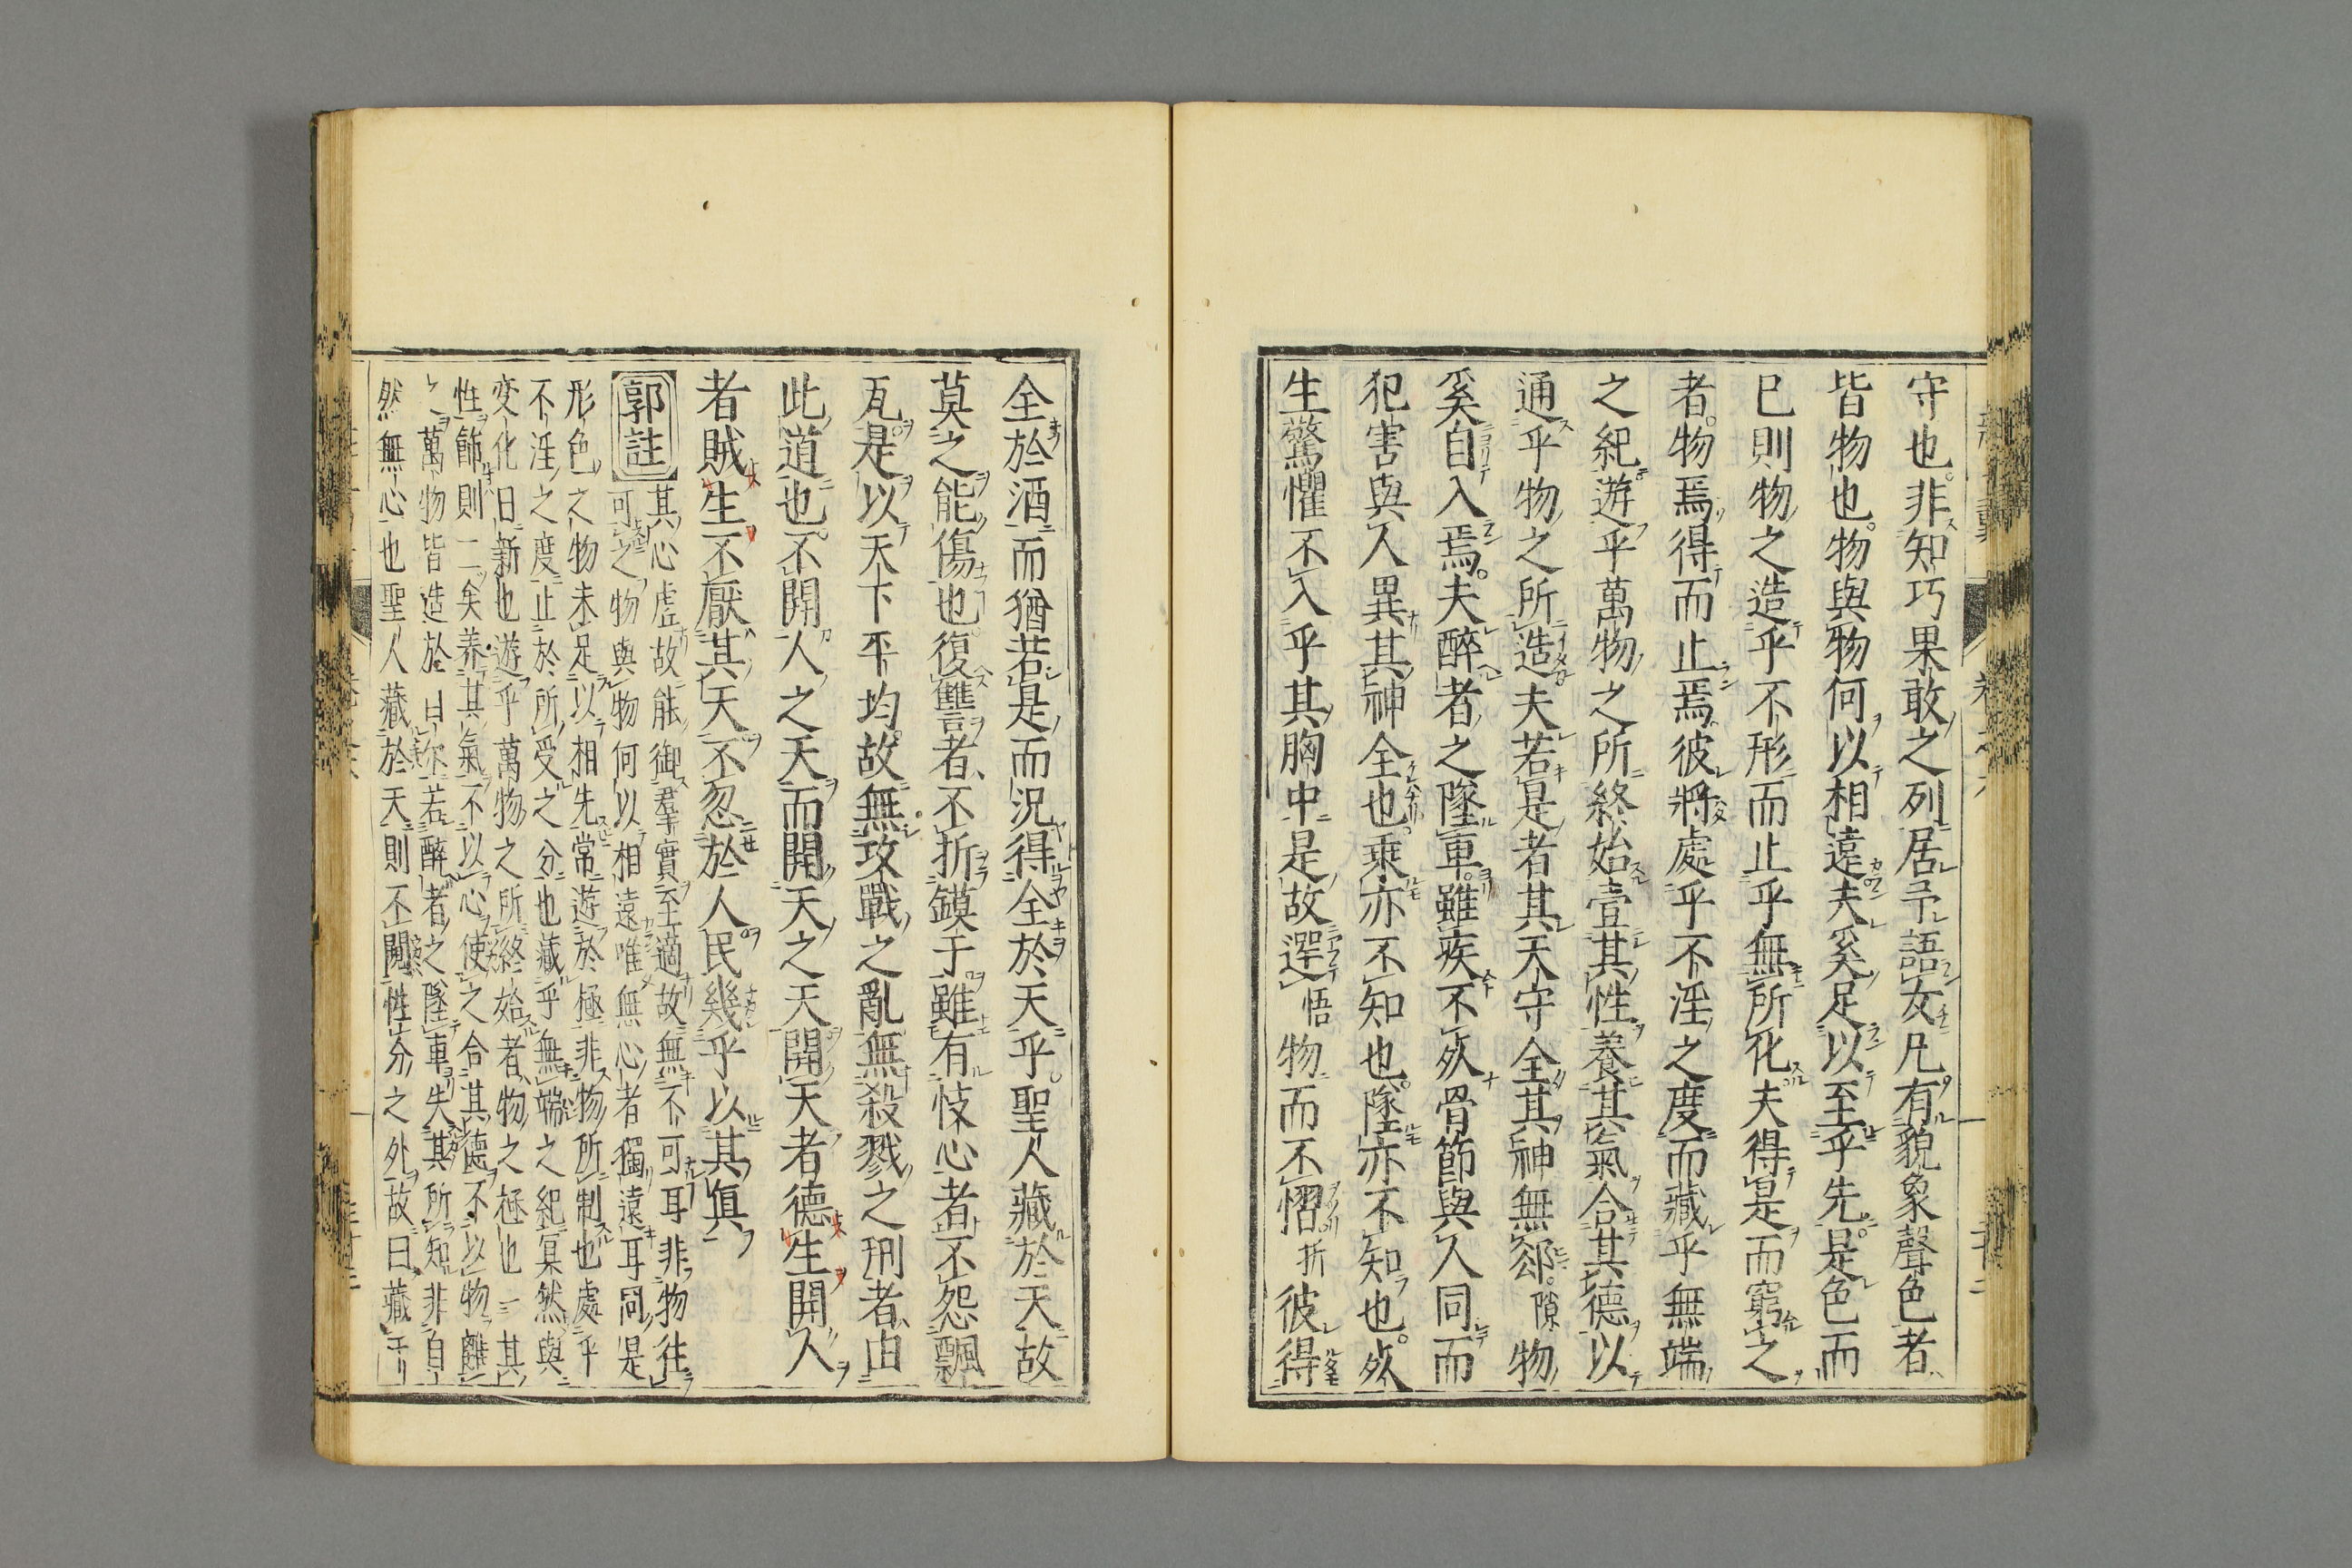 守也非知巧果敢之列居予語女凡有貌象聲色者
皆物也物與物何以相遠夫奚足以至乎先是色而
已則物之造乎不形而止乎無所化夫得是而窮之
者物焉得而止焉彼將處乎不淫之度而藏乎無端
之紀遊乎萬物之所終始壹其性養其氣合其德以
通乎物之所造夫若是者其天守全其神無郤隙物
奚自入焉夫醉者之墜車雖疾不死骨節與人同而
犯害與人異其神全也乘亦不知也墜亦不知也死
生驚懼不入乎其胸中是故遻悟物而不慴折彼得
全於酒而猶若是而況得全於天乎聖人藏於天故
莫之能傷也復讐者不折鏌于雖有忮心者不怨飄
瓦是以天下平均故無攻戰之亂無殺戮之刑者由
此道也不開人之天而開天之天開天者德生開人
者賊生不厭其天不忽於人民幾乎以其眞
郭註
其心虛故能御羣實至適故無不可耳非物往
可之物與物何以相遠唯無心者獨遠耳同是
形色之物未足以相先常遊於極非物所制也處乎
不淫之度止於所受之分也藏乎無端之紀冥然與
变化日新也遊乎萬物之所終始者物之極也一其
性飾則二矣养其氣不以心使之合其德不以物離
〻萬物皆造於自尔若醉者之墜車失其所知非自
然無心也聖人藏於天則不闚性分之外故曰藏